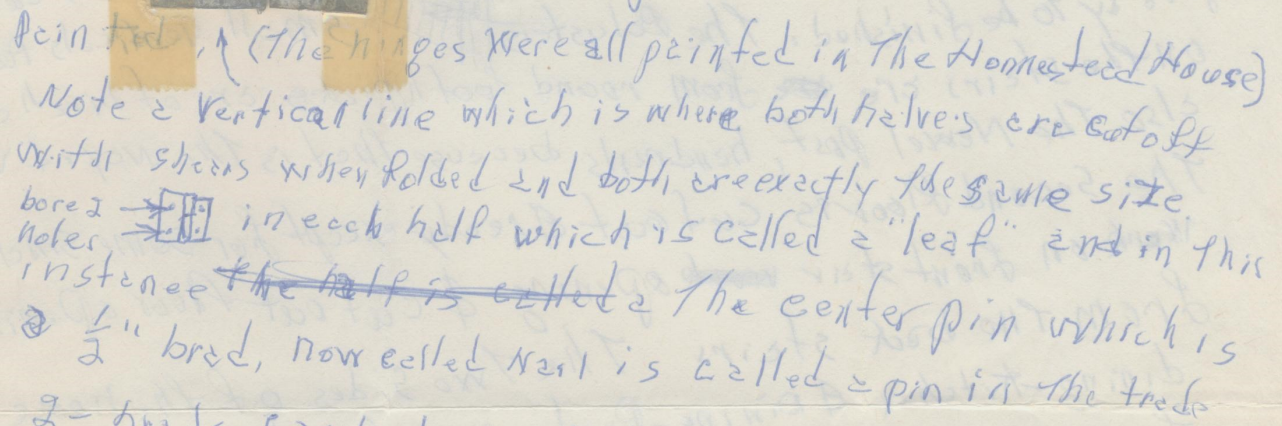 Painted, (The hinges were all painted in The Homestead House)
Note a vertical line which is where both halves are cut off
with shears when folded and both are exactly the same size.
bore 2 holes in each half which is called a "leaf" and in This
instance the half is called a The center pin which is
a 1/2" brad, now called Nail is called a pin in The trade